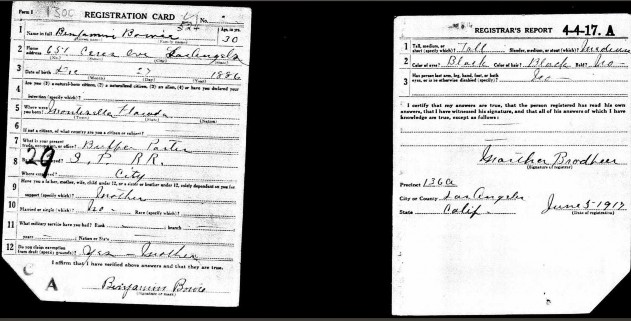 Form 1 1300 REGISTRATION CARD No.
1 Name in full Benjamin Bowie Age, in yrs. 30
2 Home address 651 Ceres Ave Los Angeles
3 Date of birth Dec 27 1886
(Month) (Day) (Year)
4 Are you (1) a natural-born citizen, (2) a naturalized citizen, (3) an alien, (4) or have you declared your
intention (specify which)?
5 Where were you born? Monticello Florida
(Town) (State) (Nation)
6 If not a citizen, of what country are you a citizen or subject?
7 What is your present trade, occupation, or office? Buffet Porter
8 29 S. P. RR.
Where employed? City
9 Have you a father, mother, wife, child under 12, or a sister or brother under 12, solely dependent on you for
support (specify which)? Mother
10 Married or single (which)? No - Race (specify which)?
11 What military service have you had? Rank branch
years Nation or State
12 Do you claim exemption from draft (specify grounds)? Yes - Mother
I affirm that I have verified above answers and that they are true.
C
A
Benjamin Bowie
REGISTRAR'S REPORT 4-4-17. A
1 Tall, medium, or short (specify which)? Tall Slender, medium, or stout (which)? Medium
2 Color of eyes? Black Color of hair? Black Bald? No -
3 Has person lost arm, leg, hand, foot, or both eyes, or is he otherwise disabled (specify)? No -
I certify that my answers are true, that the person registered has read his own
answers, that I have witnessed his signature, and that all of his answers of which I have
knowledge are true, except as follows:
Brodheer
(Signature of registrar)
Precinct 136a
City or County Los Angeles
State Calif. June 5-1917
(Date of registration)